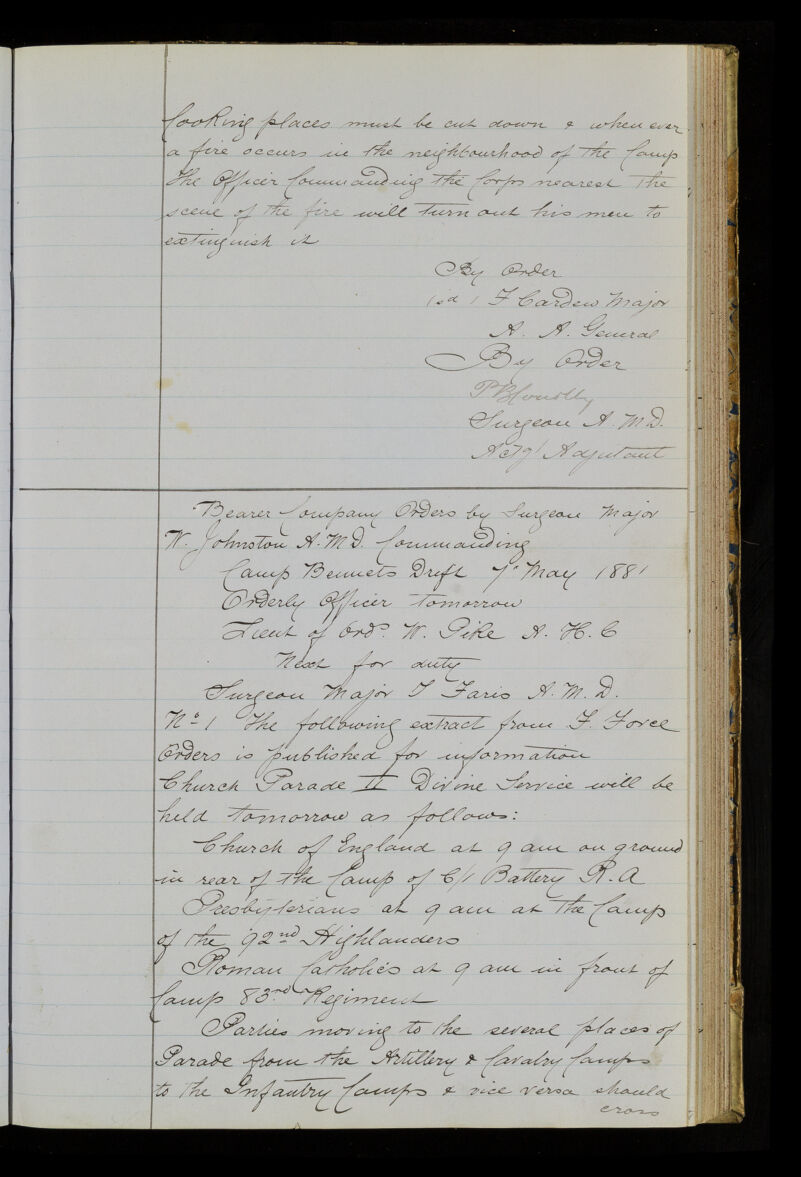 Cooking places must be cut down & when ever
a fire occurs in the neighbourhood of the Camp
the Officer Commanding the Corps nearest the
scene of the fire will turn out his men to
extinguish it
By Order
(sd) F Cardew Major
A. A. General
By Order
Surgeon A. M. D.
Actg/ Adjutant
Bearer Company Orders by Surgeon Major
W. Johnston A. M. D. Commanding
Camp Bennets Drift 7" May 1881
Orderly Officer tomorrow
Lieut of Ords. W. Pike A. H. C
Next for duty
Surgeon Major T Faris A. M. D.
No 1 The following extract from F. Force
Orders is published for information
Church Parade II Divine Service will be
held tomorrow as follows:
Church of England at 9 am on ground
in rear of the Camp of C/1 Battery R. A
Presbyterians at 9 am at the Camp
of the 92nd Highlanders
Roman Catholics at 9 am in front of
Camp 83rd Regiment
Parties moving to the several places of
Parade from the Artillery & Cavalry Camps
to the Infantry Camps & vice versa should
cross